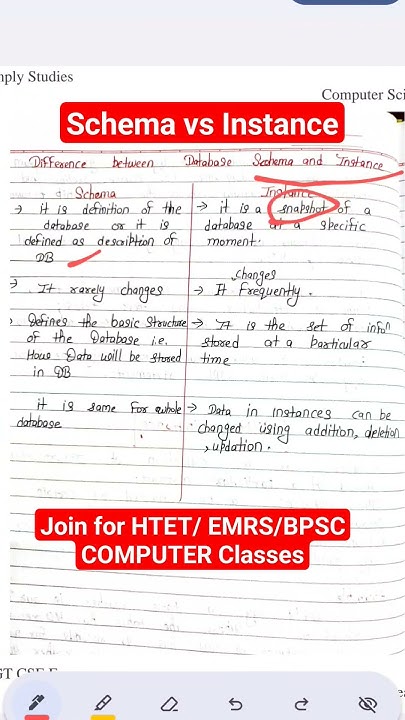 mply Studies
Computer Sci
Schema vs Instance
Difference between Database Schema and Instance
Schema
→ it is definition of the
database or it is
defined as description of
DB
→ It rarely changes
Defines the basic Structure
of the Database i.e.
How Data will be stored
in DB
it is same for whole
database
Instance
→ it is a snapshot of a
database at a specific
moment.
changes
→ It Frequently.
→ It is the set of infon
stored at a Particular
time
→ Data in instances can be
changed using addition, deletion
, updation.
Join for HTET/ EMRS/BPSC
COMPUTER Classes